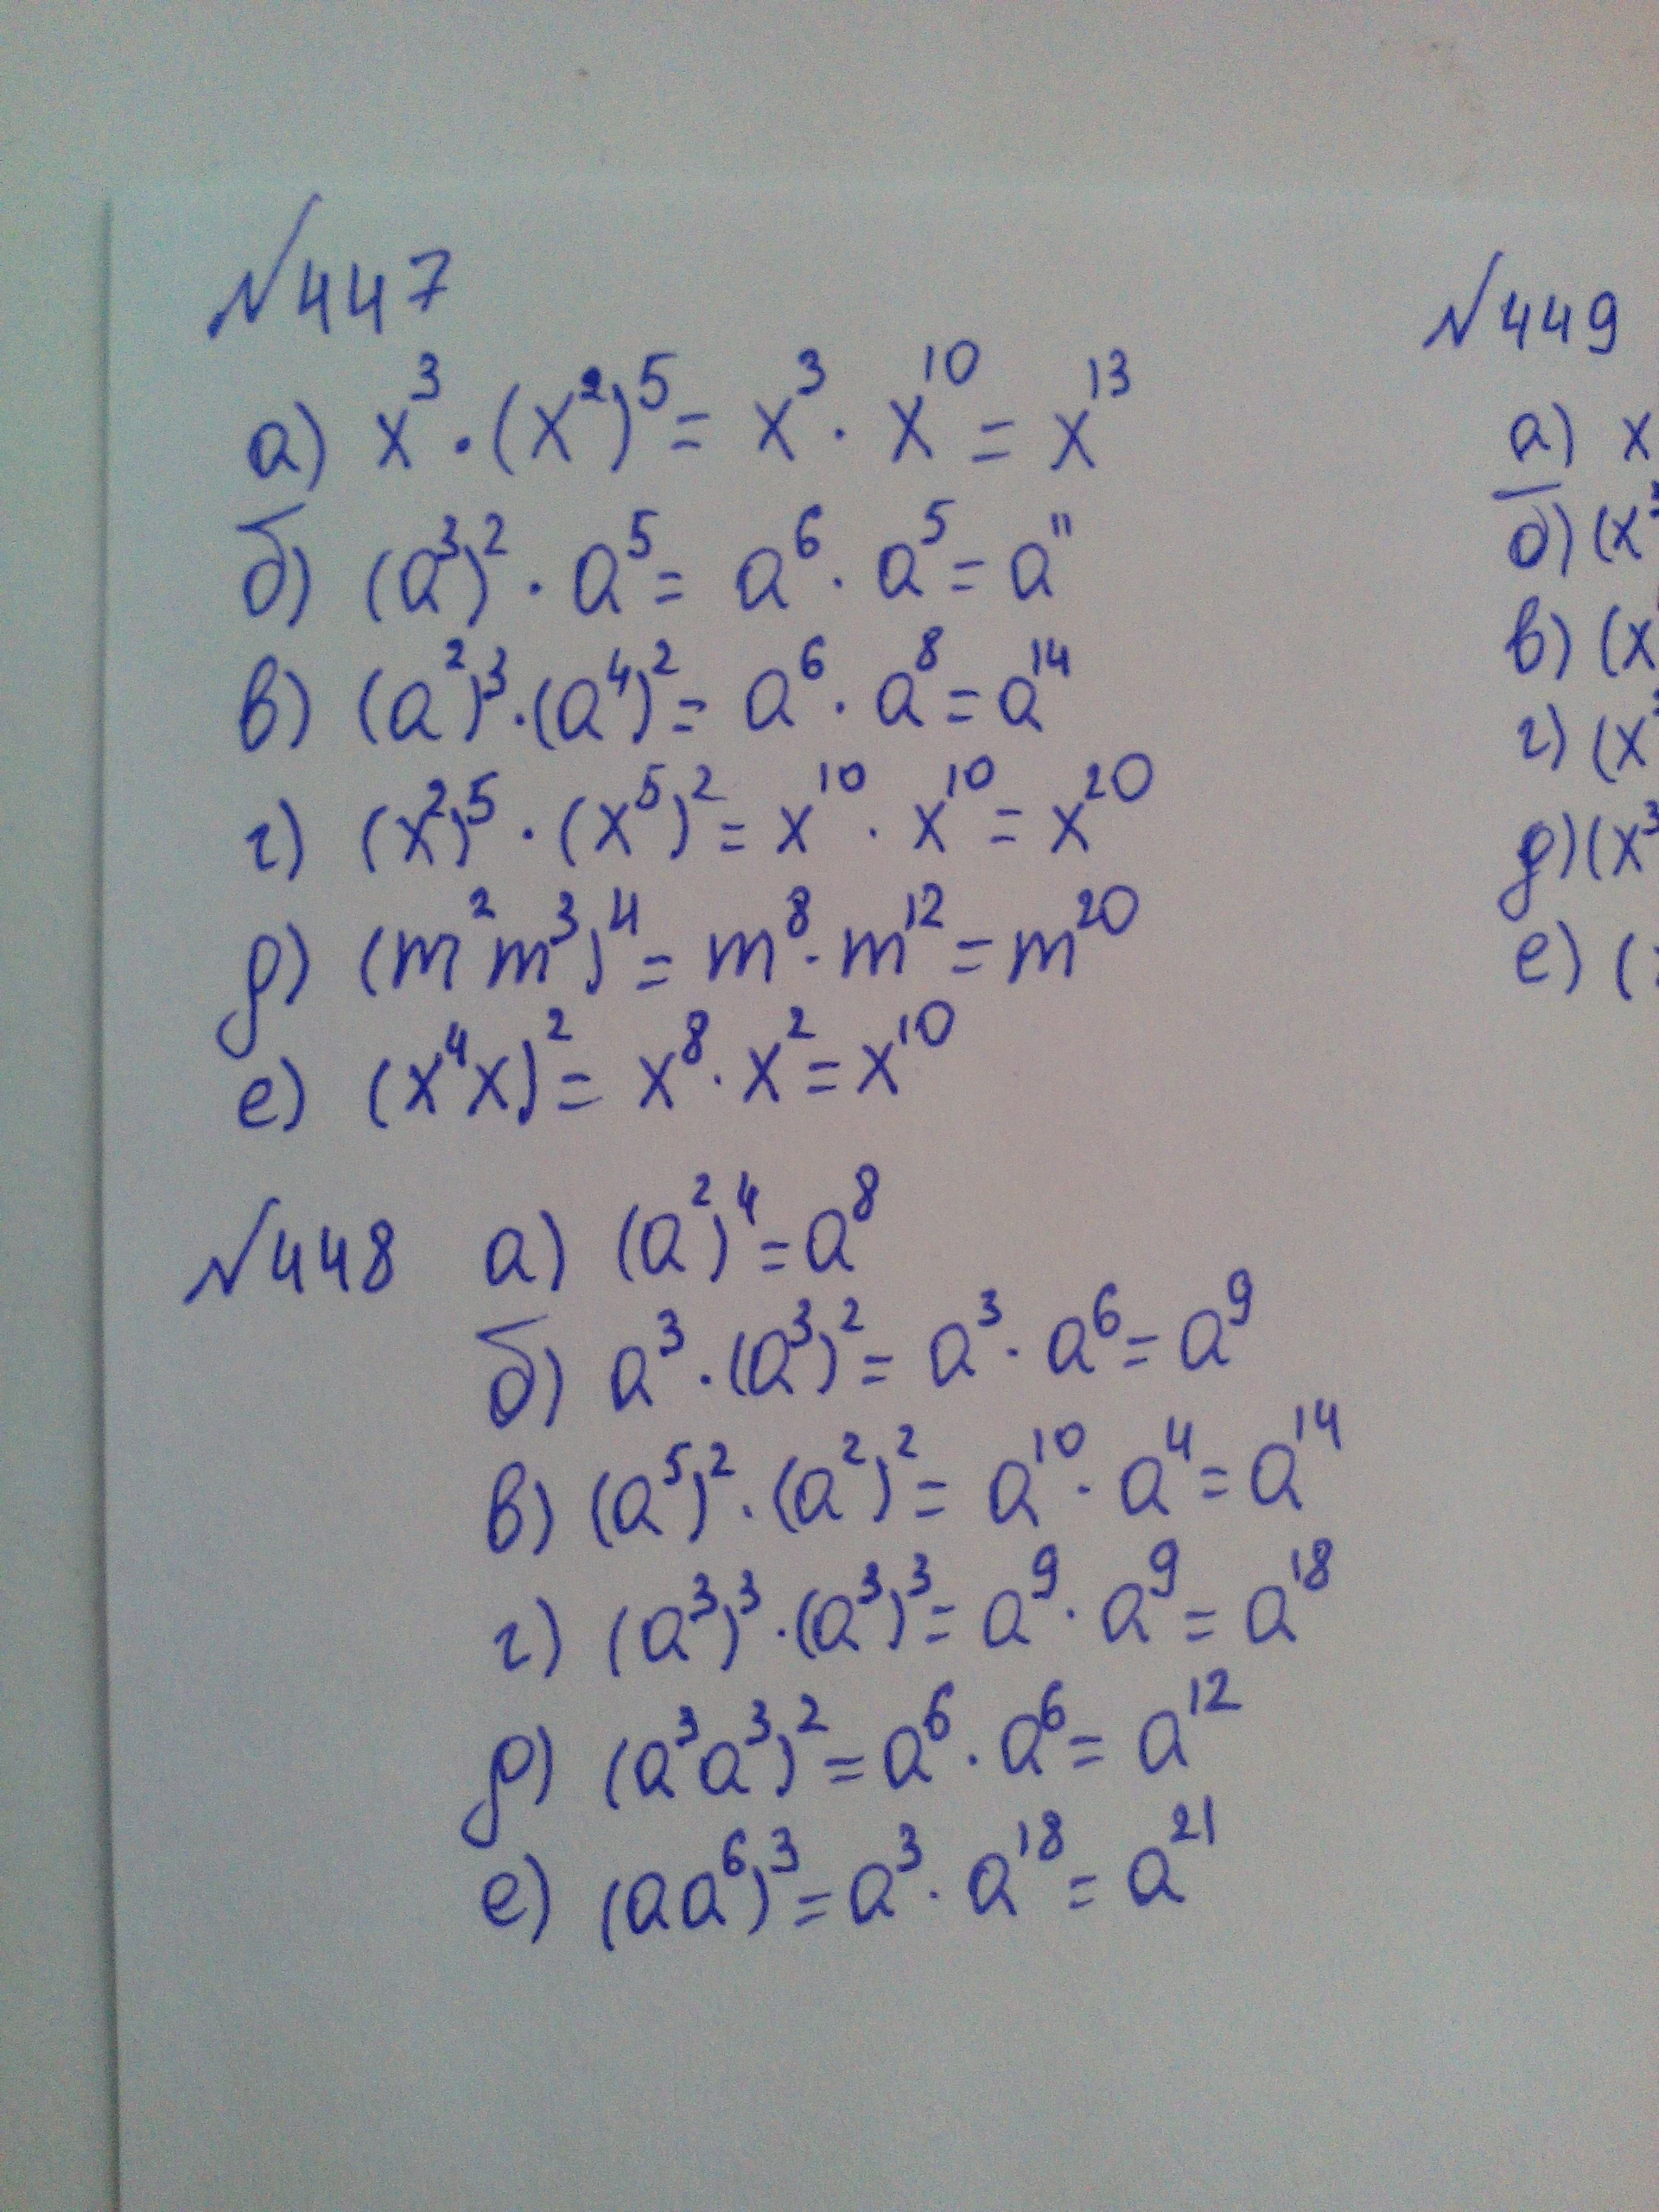 №447
а) x³ · (x²)⁵ = x³ · x¹⁰ = x¹³
б) (a³)² · a⁵ = a⁶ · a⁵ = a¹¹
в) (a²)³ · (a⁴)² = a⁶ · a⁸ = a¹⁴
г) (x²)⁵ · (x⁵)² = x¹⁰ · x¹⁰ = x²⁰
д) (m²m³)⁴ = m⁸ · m¹² = m²⁰
е) (x⁴x)² = x⁸ · x² = x¹⁰
№448 а) (a²)⁴ = a⁸
б) a³ · (a³)² = a³ · a⁶ = a⁹
в) (a⁵)² · (a²)² = a¹⁰ · a⁴ = a¹⁴
г) (a³)³ · (a³)³ = a⁹ · a⁹ = a¹⁸
д) (a³a³)² = a⁶ · a⁶ = a¹²
е) (aa⁶)³ = a³ · a¹⁸ = a²¹
№449
а) x
б) (x³
в) (x
г) (x
д) (x³
е) (